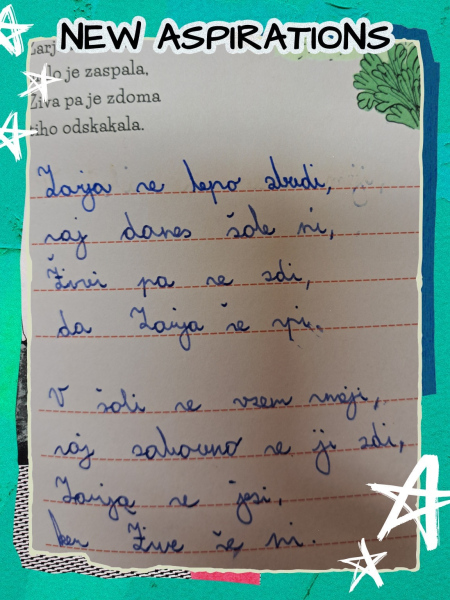 NEW ASPIRATIONS
je zaspala,
Živa pa je zdoma
tiho odskakala.
Zarja se lepo zbudi,
saj danes šole ni,
Živi pa se zdi,
da Zarja še spi.
V šoli se vsem smeji,
saj zabavno se ji zdi,
Zarja se jezi,
ker Žive še ni.